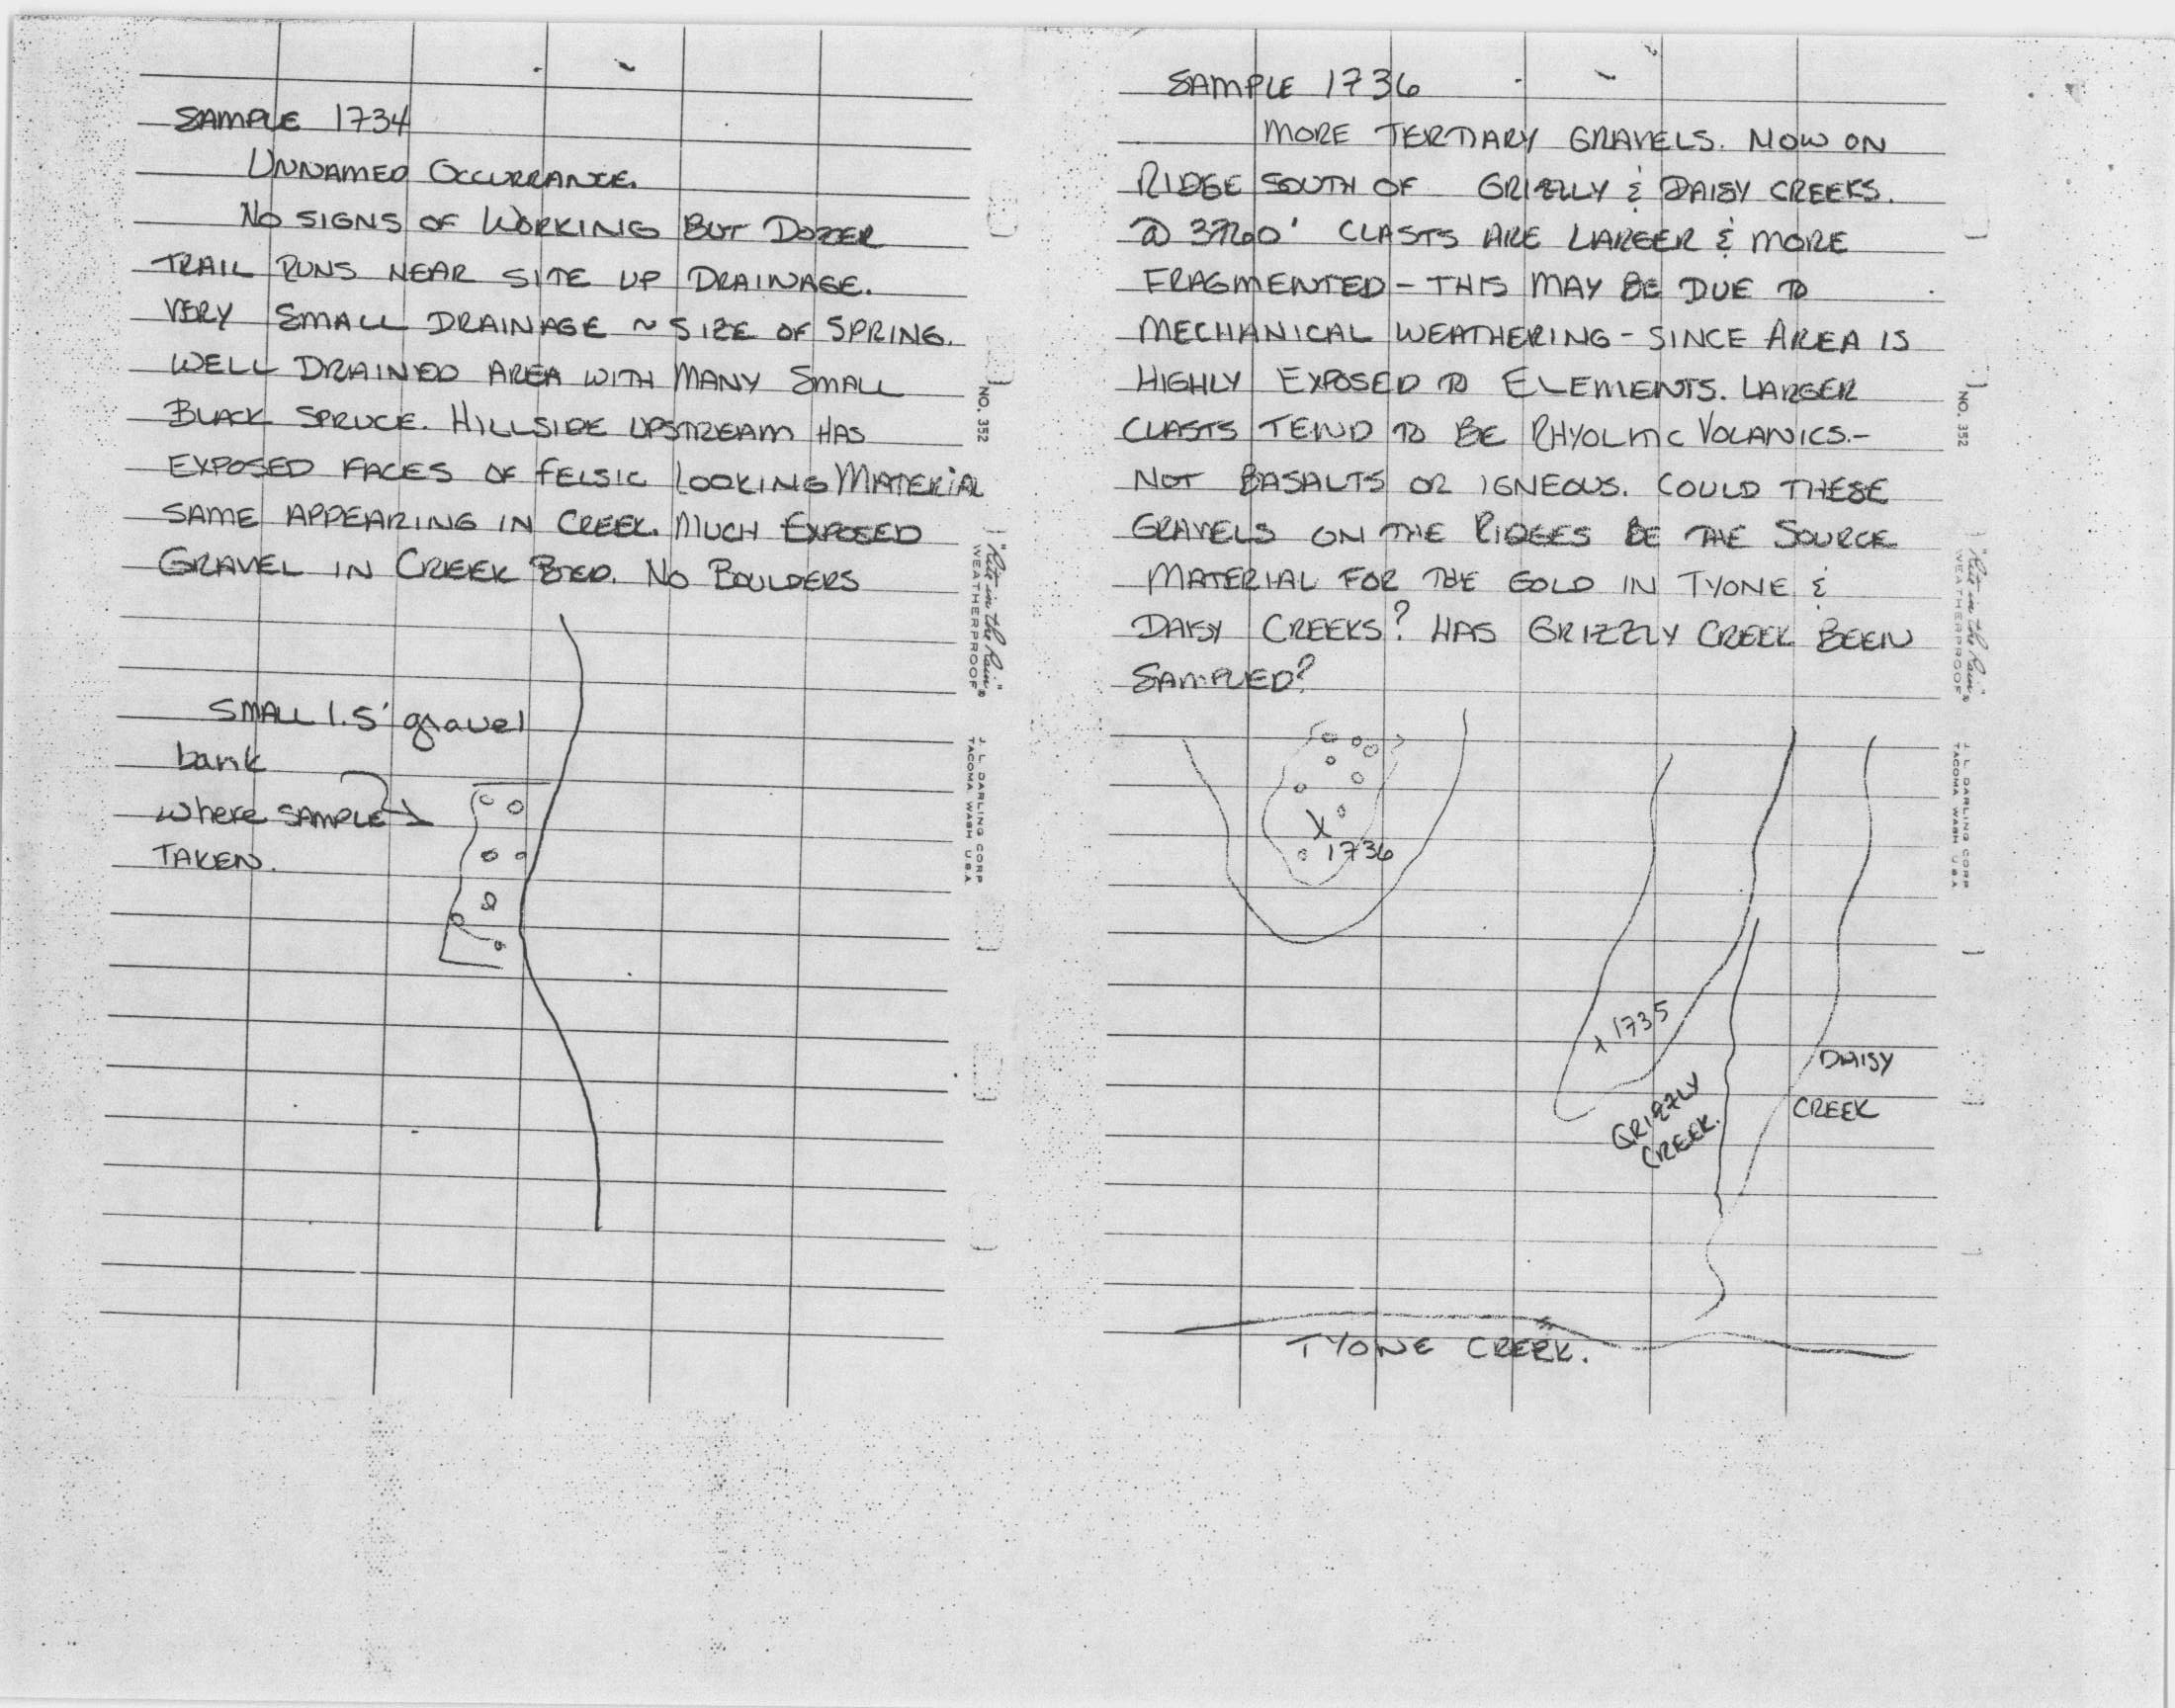 SAMPLE 1734
UNNAMED OCCURRANCE.
NO SIGNS OF WORKING BUT DOZER
TRAIL RUNS NEAR SITE UP DRAINAGE.
VERY SMALL DRAINAGE ~ SIZE OF SPRING.
WELL DRAINED AREA WITH MANY SMALL
BLACK SPRUCE. HILLSIDE UPSTREAM HAS
EXPOSED FACES OF FELSIC LOOKING MATERIAL
SAME APPEARING IN CREEK. MUCH EXPOSED
GRAVEL IN CREEK BED. NO BOULDERS
SMALL 1.5' gravel
bank
where SAMPLE
TAKEN.
NO. 352
"Rite in the Rain"®
WEATHERPROOF
J. L. DARLING CORP
TACOMA WASH U.S.A
SAMPLE 1736
MORE TERTIARY GRAVELS. NOW ON
RIDGE SOUTH OF GRIZZLY & DAISY CREEKS.
@ CLASTS ARE LARGER & MORE
FRAGMENTED - THIS MAY BE DUE TO
MECHANICAL WEATHERING - SINCE AREA IS
HIGHLY EXPOSED TO ELEMENTS. LARGER
CLASTS TEND TO BE RHYOLITIC VOLANICS.-
NOT BASALTS OR IGNEOUS. COULD THESE
GRAVELS ON THE RIDGES BE THE SOURCE
MATERIAL FOR THE GOLD IN TYONE &
DAISY CREEKS? HAS GRIZZLY CREEK BEEN
SAMPLED?
X
1736
x 1735
GRIZZLY
CREEK.
DAISY
CREEK
TYONE CREEK.
NO. 352
"Rite in the Rain"®
WEATHERPROOF
J. L. DARLING CORP
TACOMA WASH U.S.A